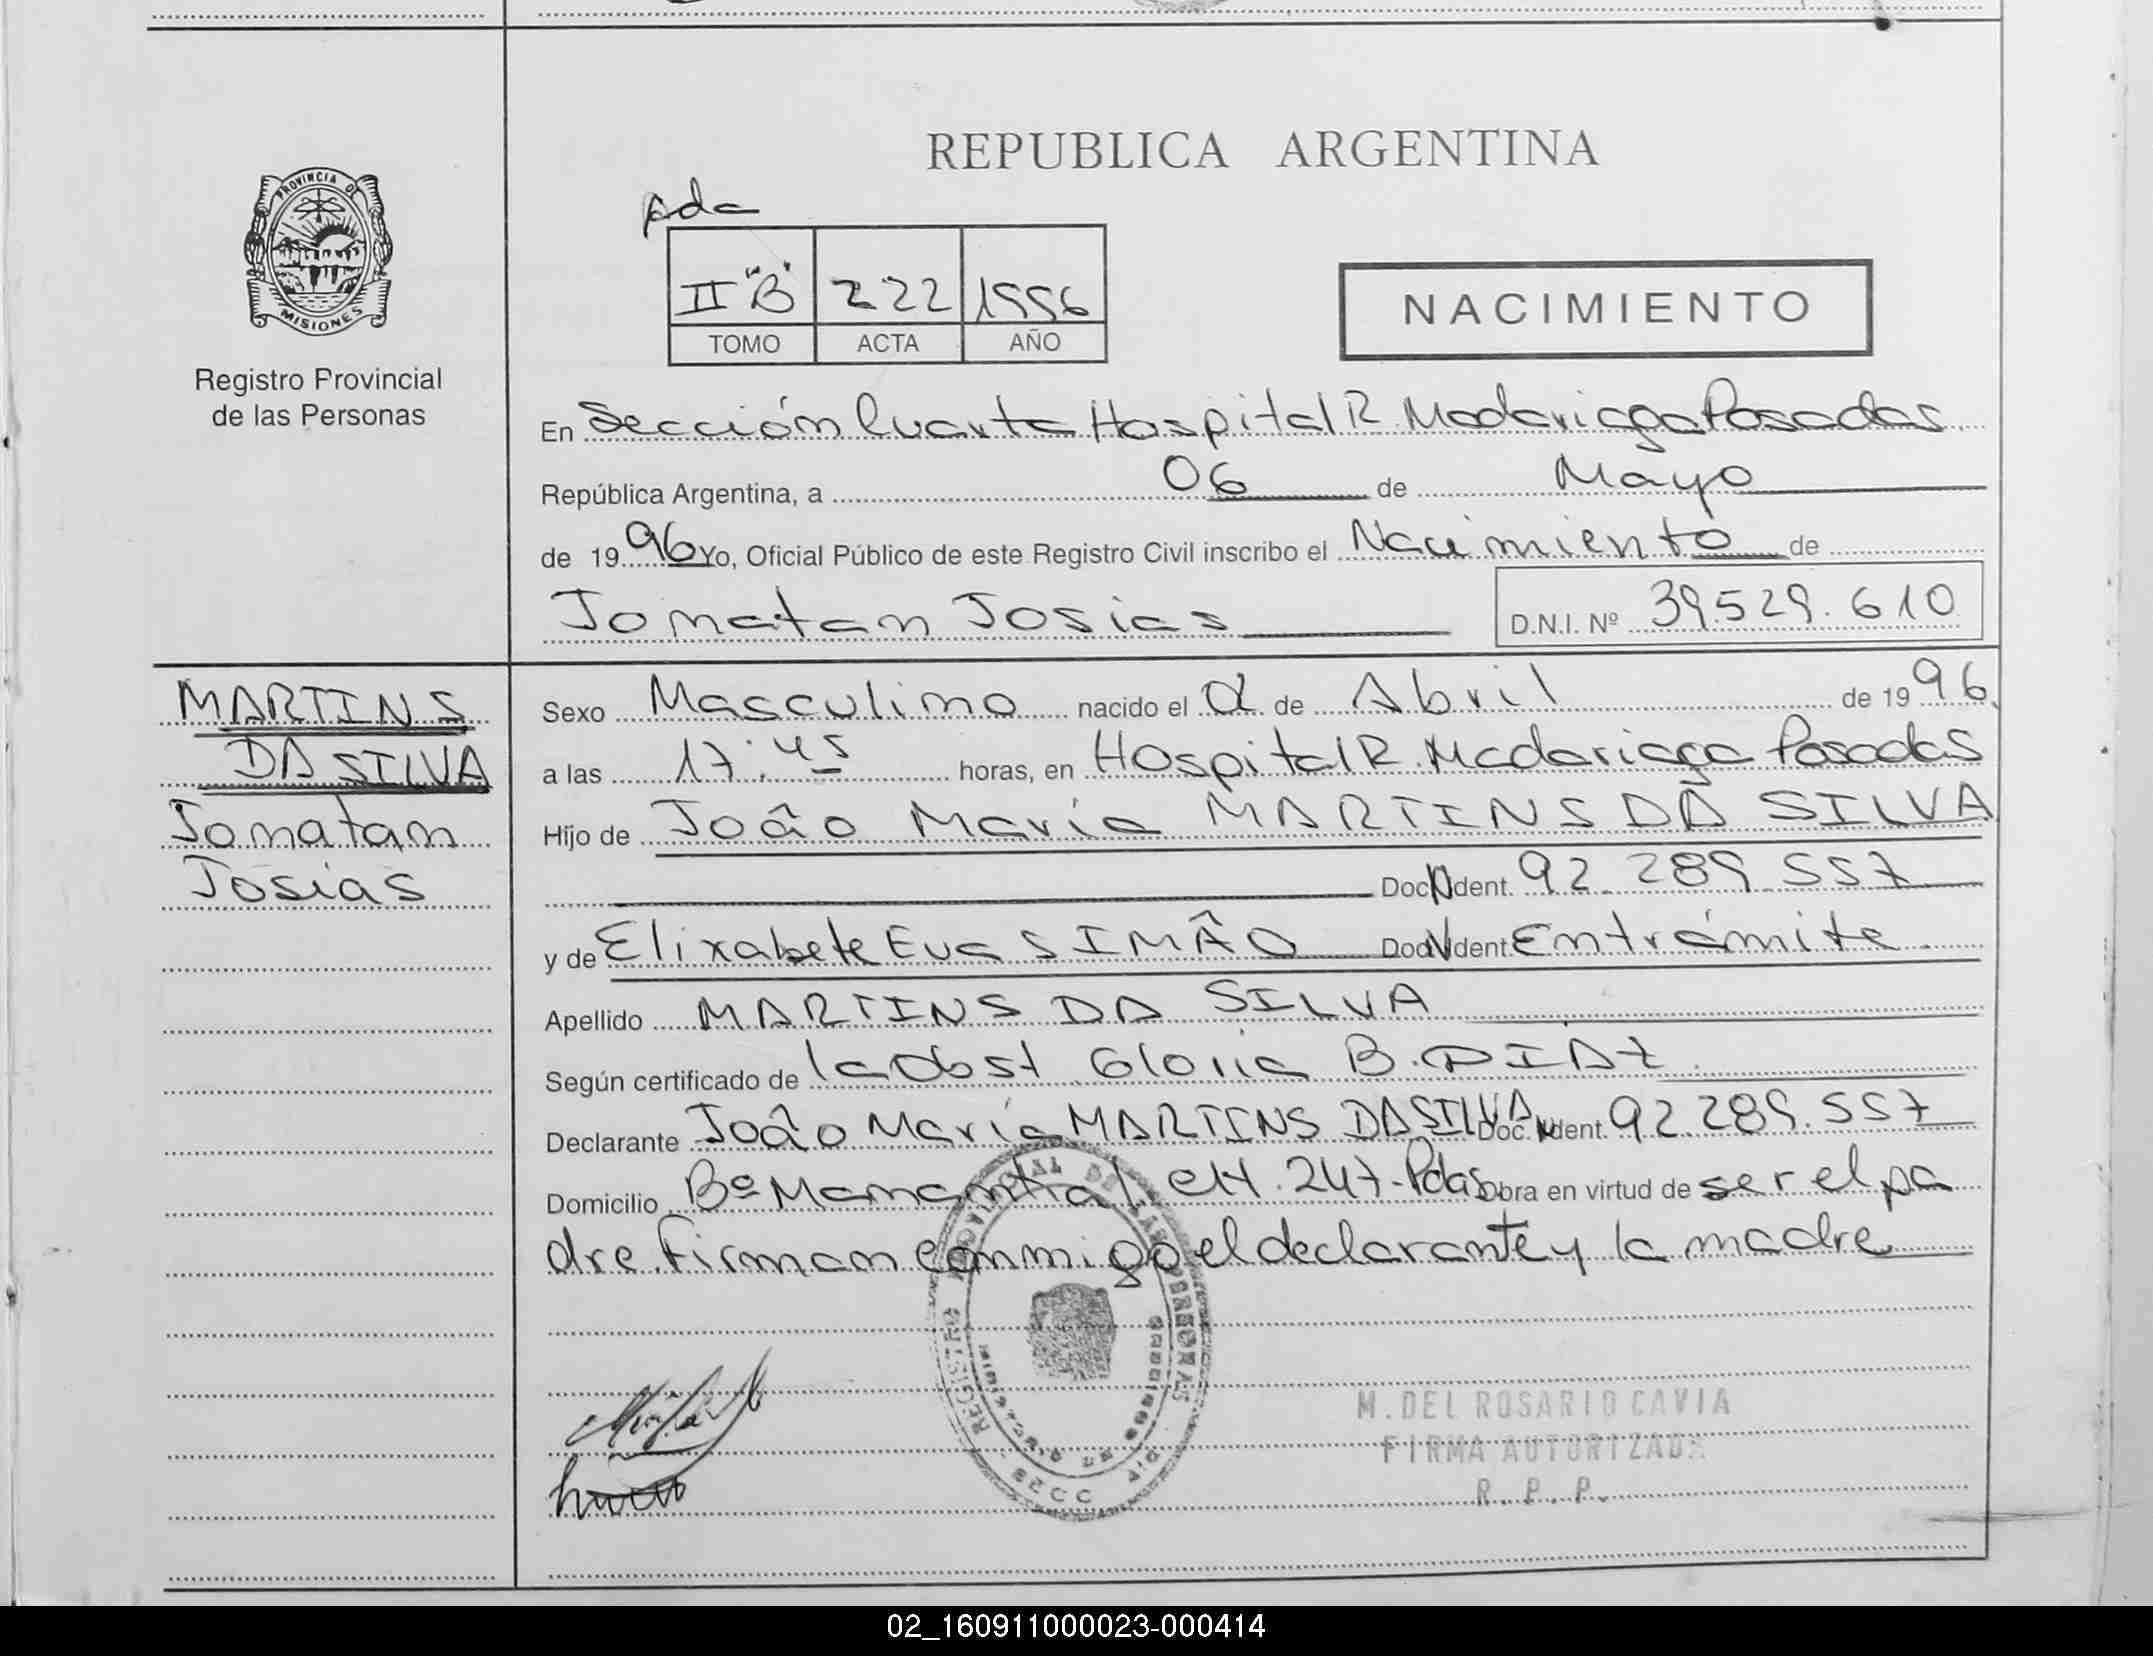 PROVINCIA DE
MISIONES
Registro Provincial
de las Personas
REPUBLICA ARGENTINA
Pda
II "B" 222 1996
TOMO ACTA AÑO
NACIMIENTO
En Sección Cuarta Hospital R. Madariaga Posadas
República Argentina, a 06 de Mayo
de 1996 Yo, Oficial Público de este Registro Civil inscribo el Nacimiento de
Jonatan Josias D.N.I. Nº 39.529.610
MARTINS
DA SILVA
Jonatan
Josias
Sexo Masculino nacido el de Abril de 1996
a las 17:45 horas, en Hospital R. Madariaga Posadas
Hijo de João María MARTINS DA SILVA
Doc. Ident. 92.289.557
y de Elizabete Eva SIMÃO Doc. Ident. En trámite
Apellido MARTINS DA SILVA
Según certificado de la Obst Gloria B. DIAZ
Declarante João María MARTINS DA SILVA Doc. Ident. 92.289.557
Domicilio Bº Manantial. CH. 247. Pdas Obra en virtud de ser el pa
dre. Firman conmigo el declarante y la madre
REGISTRO PROVINCIAL DE LAS PERSONAS
M. DEL ROSARIO CAVIA
FIRMA AUTORIZADA
R. P. P.
02_160911000023-000414